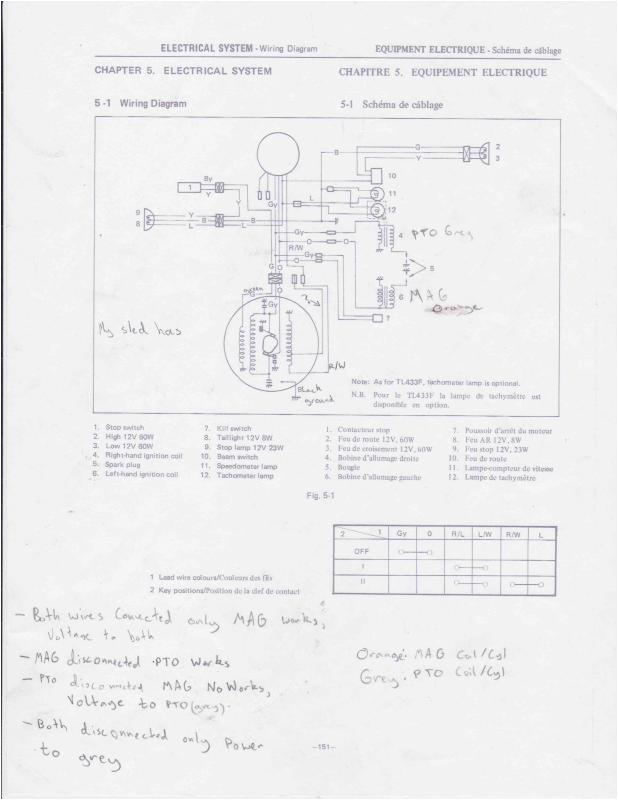 ELECTRICAL SYSTEM - Wiring Diagram EQUIPMENT ELECTRIQUE - Schéma de câblage
CHAPTER 5. ELECTRICAL SYSTEM CHAPITRE 5. EQUIPEMENT ELECTRIQUE
5-1 Wiring Diagram 5-1 Schéma de câblage
G 2
B
Y 3
10
By
1
Y
Y
11
L
12
Gy
9 Y
8 B B
L L
Gy
4 PTO Grey
R/W
O
Gy
5
G O
green
G
Gy
6 MAG
orange
7
My sled has
R/W
Black
ground
Note: As for TL433F, tachometer lamp is optional.
N.B. Pour le TL433F la lampe de tachymètre est
disponible en option.
1. Stop switch
2. High 12V 60W
3. Low 12V 60W
4. Right-hand ignition coil
5. Spark plug
6. Left-hand ignition coil
7. Kill switch
8. Taillight 12V 8W
9. Stop lamp 12V 23W
10. Beam switch
11. Speedometer lamp
12. Tachometer lamp
1. Contacteur stop
2. Feu de route 12V, 60W
3. Feu de croisement 12V, 60W
4. Bobine d'allumage droite
5. Bougie
6. Bobine d'allumage gauche
7. Poussoir d'arrêt du moteur
8. Feu AR 12V, 8W
9. Feu stop 12V, 23W
10. Feu de route
11. Lampe-compteur de vitesse
12. Lampe de tachymètre
Fig. 5-1
2 1 Gy O R/L L/W R/W L
OFF
I
II
1 Lead wire colours/Couleurs des fils
2 Key positions/Position de la clef de contact
- Both wires Convected only MAG works,
Voltage to both
- MAG disconnected PTO Works
- PTO disconnected MAG No Works,
Voltage to PTO (grey).
- Both disconnected only Power
to grey
Orange: MAG Coil/Cyl
Grey: PTO Coil/Cyl
-151-